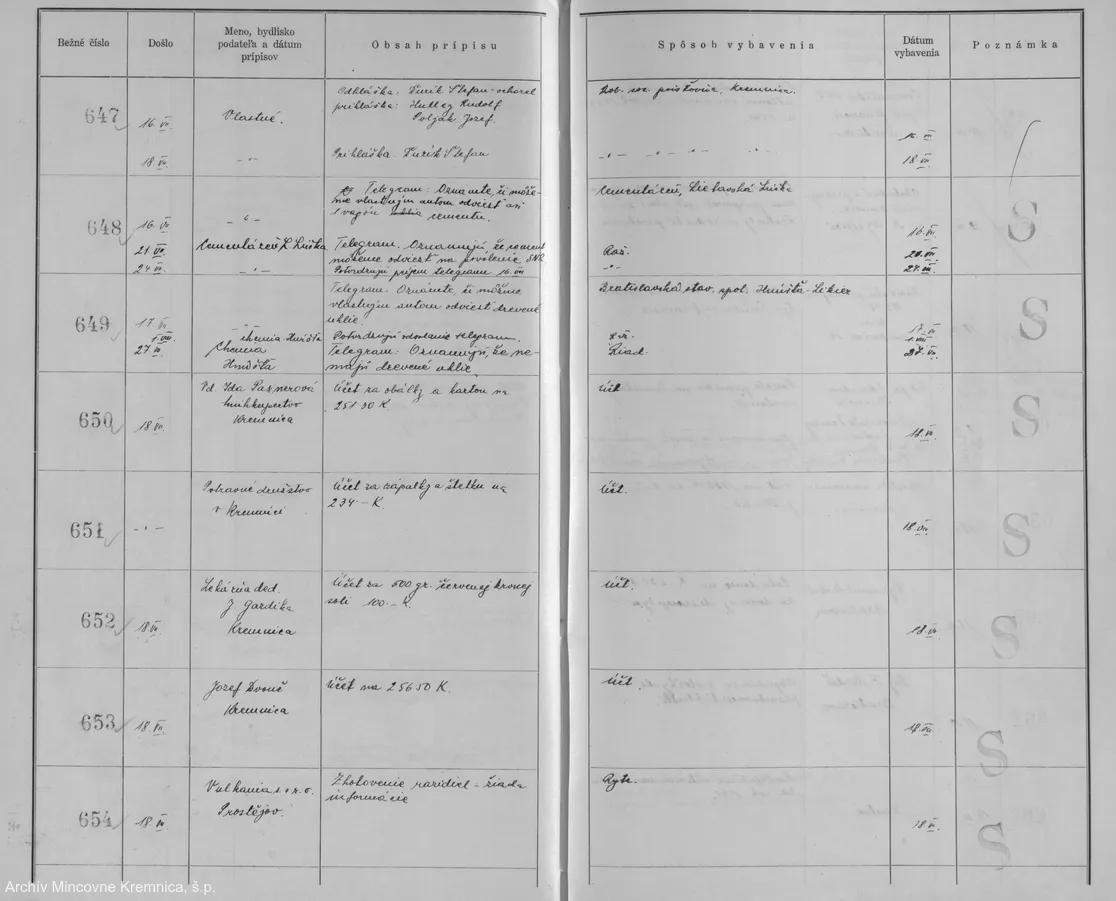 Bežné číslo
Došlo
Meno, bydlisko
podateľa a dátum
prípisov
Obsah prípisu
Spôsob vybavenia
Dátum
vybavenia
Poznámka
647
16. VII.
Vlastné.
Odhláška: Ďurík Štefan - ochorel
prihláška: Rudolf
Poljak Jozef.
Rob. soc. poisťovňa, Kremnica.
18 VII.
Prihláška Ďurík Štefan
18 VII
648
16. VII
Telegram: Oznámte, či môže-
me vlastným autom odviesť asi
1 vagón cementu.
Cementáreň, Lietavská Lúčka
16. VII.
21. VII.
Cementáreň L. Lúčka
Telegram. Oznamujú, že cement
môžeme odviesť na povolenie SNR
Riad.
24 VII.
Potvrdzujú príjem telegramu 16. VII
24. VII
649
17. VII
Telegram. Oznámte, či môžeme
vlastným autom odviesť drevené
uhlie.
Bratislavská stav. spol. Hnúšťa-Likier
17. VII
1. VIII
Chemia Hnúšťa
Potvrdzujú odoslanie telegramu.
1. VIII
27 VII.
Chemia
Hnúšťa
Telegram: Oznamujú, že ne-
majú drevené uhlie.
Riad.
27. VII.
650
18. VII.
Vd. Ida Paznerová
kníhkupectvo
Kremnica
Účet za obálky a kartou na
251.30 K
Účt
18. VII.
651
Potravné družstvo
v Kremnici
Účet za zápalky a štetku na
234.- K.
Účt.
18. VII.
652
18. VII
Lekáreň ded.
J. Gardíka
Kremnica
Účet za 500 gr. červenej krvnej
soli 100.- K.
Účt.
18. VII.
653
18. VII.
Jozef
Kremnica
Účet na 256.50 K.
Účt.
18. VII.
654
18. VII
Vulkania s. s r. o.
Prostějov.
Zhotovenie razidiel - žiada
informácie
Ryte.
18. VII.
S
S
S
S
S
S
S
Archív Mincovne Kremnica, š.p.